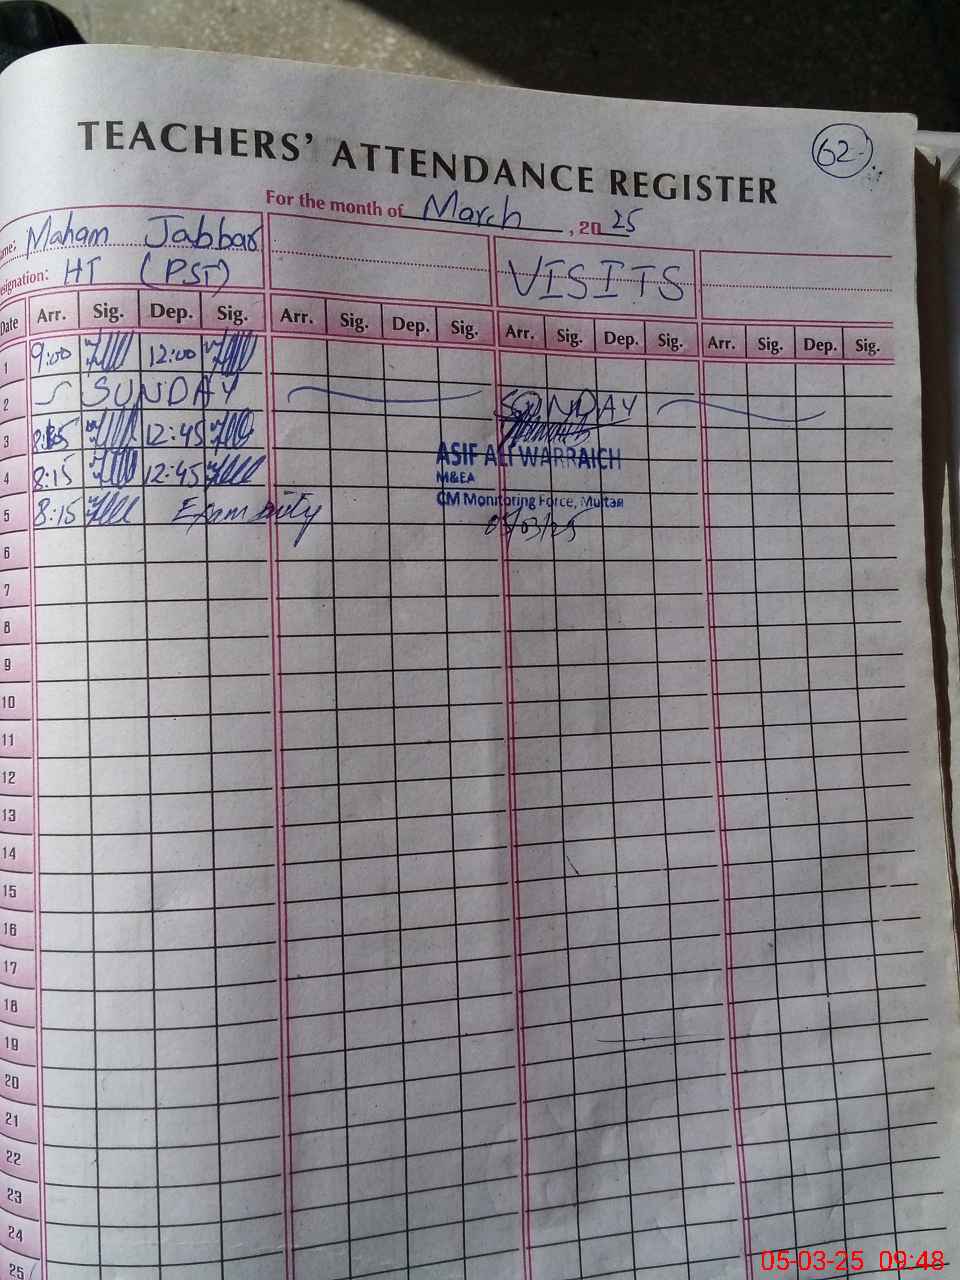 TEACHERS' ATTENDANCE REGISTER
62
For the month of March, 2025
ame: Maham Jabbar
esignation: HT (PST)
VISITS
Date Arr. Sig. Dep. Sig. Arr. Sig. Dep. Sig. Arr. Sig. Dep. Sig. Arr. Sig. Dep. Sig.
1 9:00 12:00
2 SUNDAY SUNDAY
3 12:45
4 8:15 12:45
ASIF ALI WARRAICH
M&EA
CM Monitoring Force, Multan
5 8:15 Exam Duty
05/03/25
6
7
8
9
10
11
12
13
14
15
16
17
18
19
20
21
22
23
24
25
05-03-25 09:48